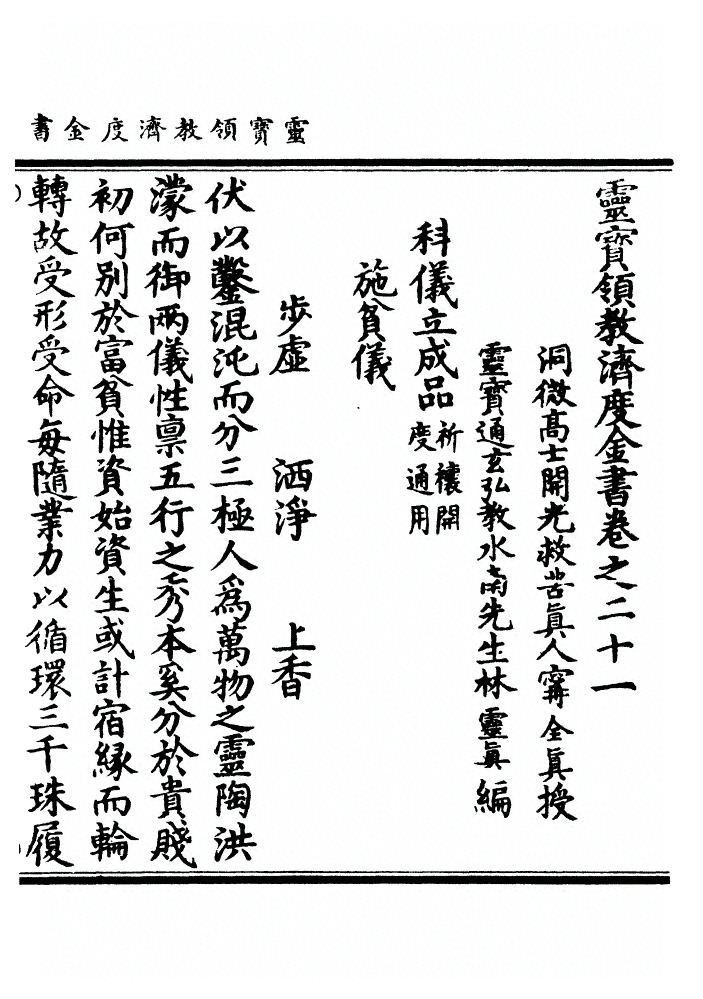 靈寶領教濟度金書
靈寶領教濟度金書卷之二十一
洞微高士開光救苦眞人甯全眞授
靈寶通玄弘教水南先生林靈眞編
科儀立成品祈禳開度通用
施貧儀
步虛　洒淨　上香
伏以鑿混沌而分三極人爲萬物之靈陶洪
濛而御兩儀性禀五行之秀本奚分於貴賤
初何別於富貧惟資始資生或計宿縁而輪
轉故受形受命每隨業力以循環三千珠履